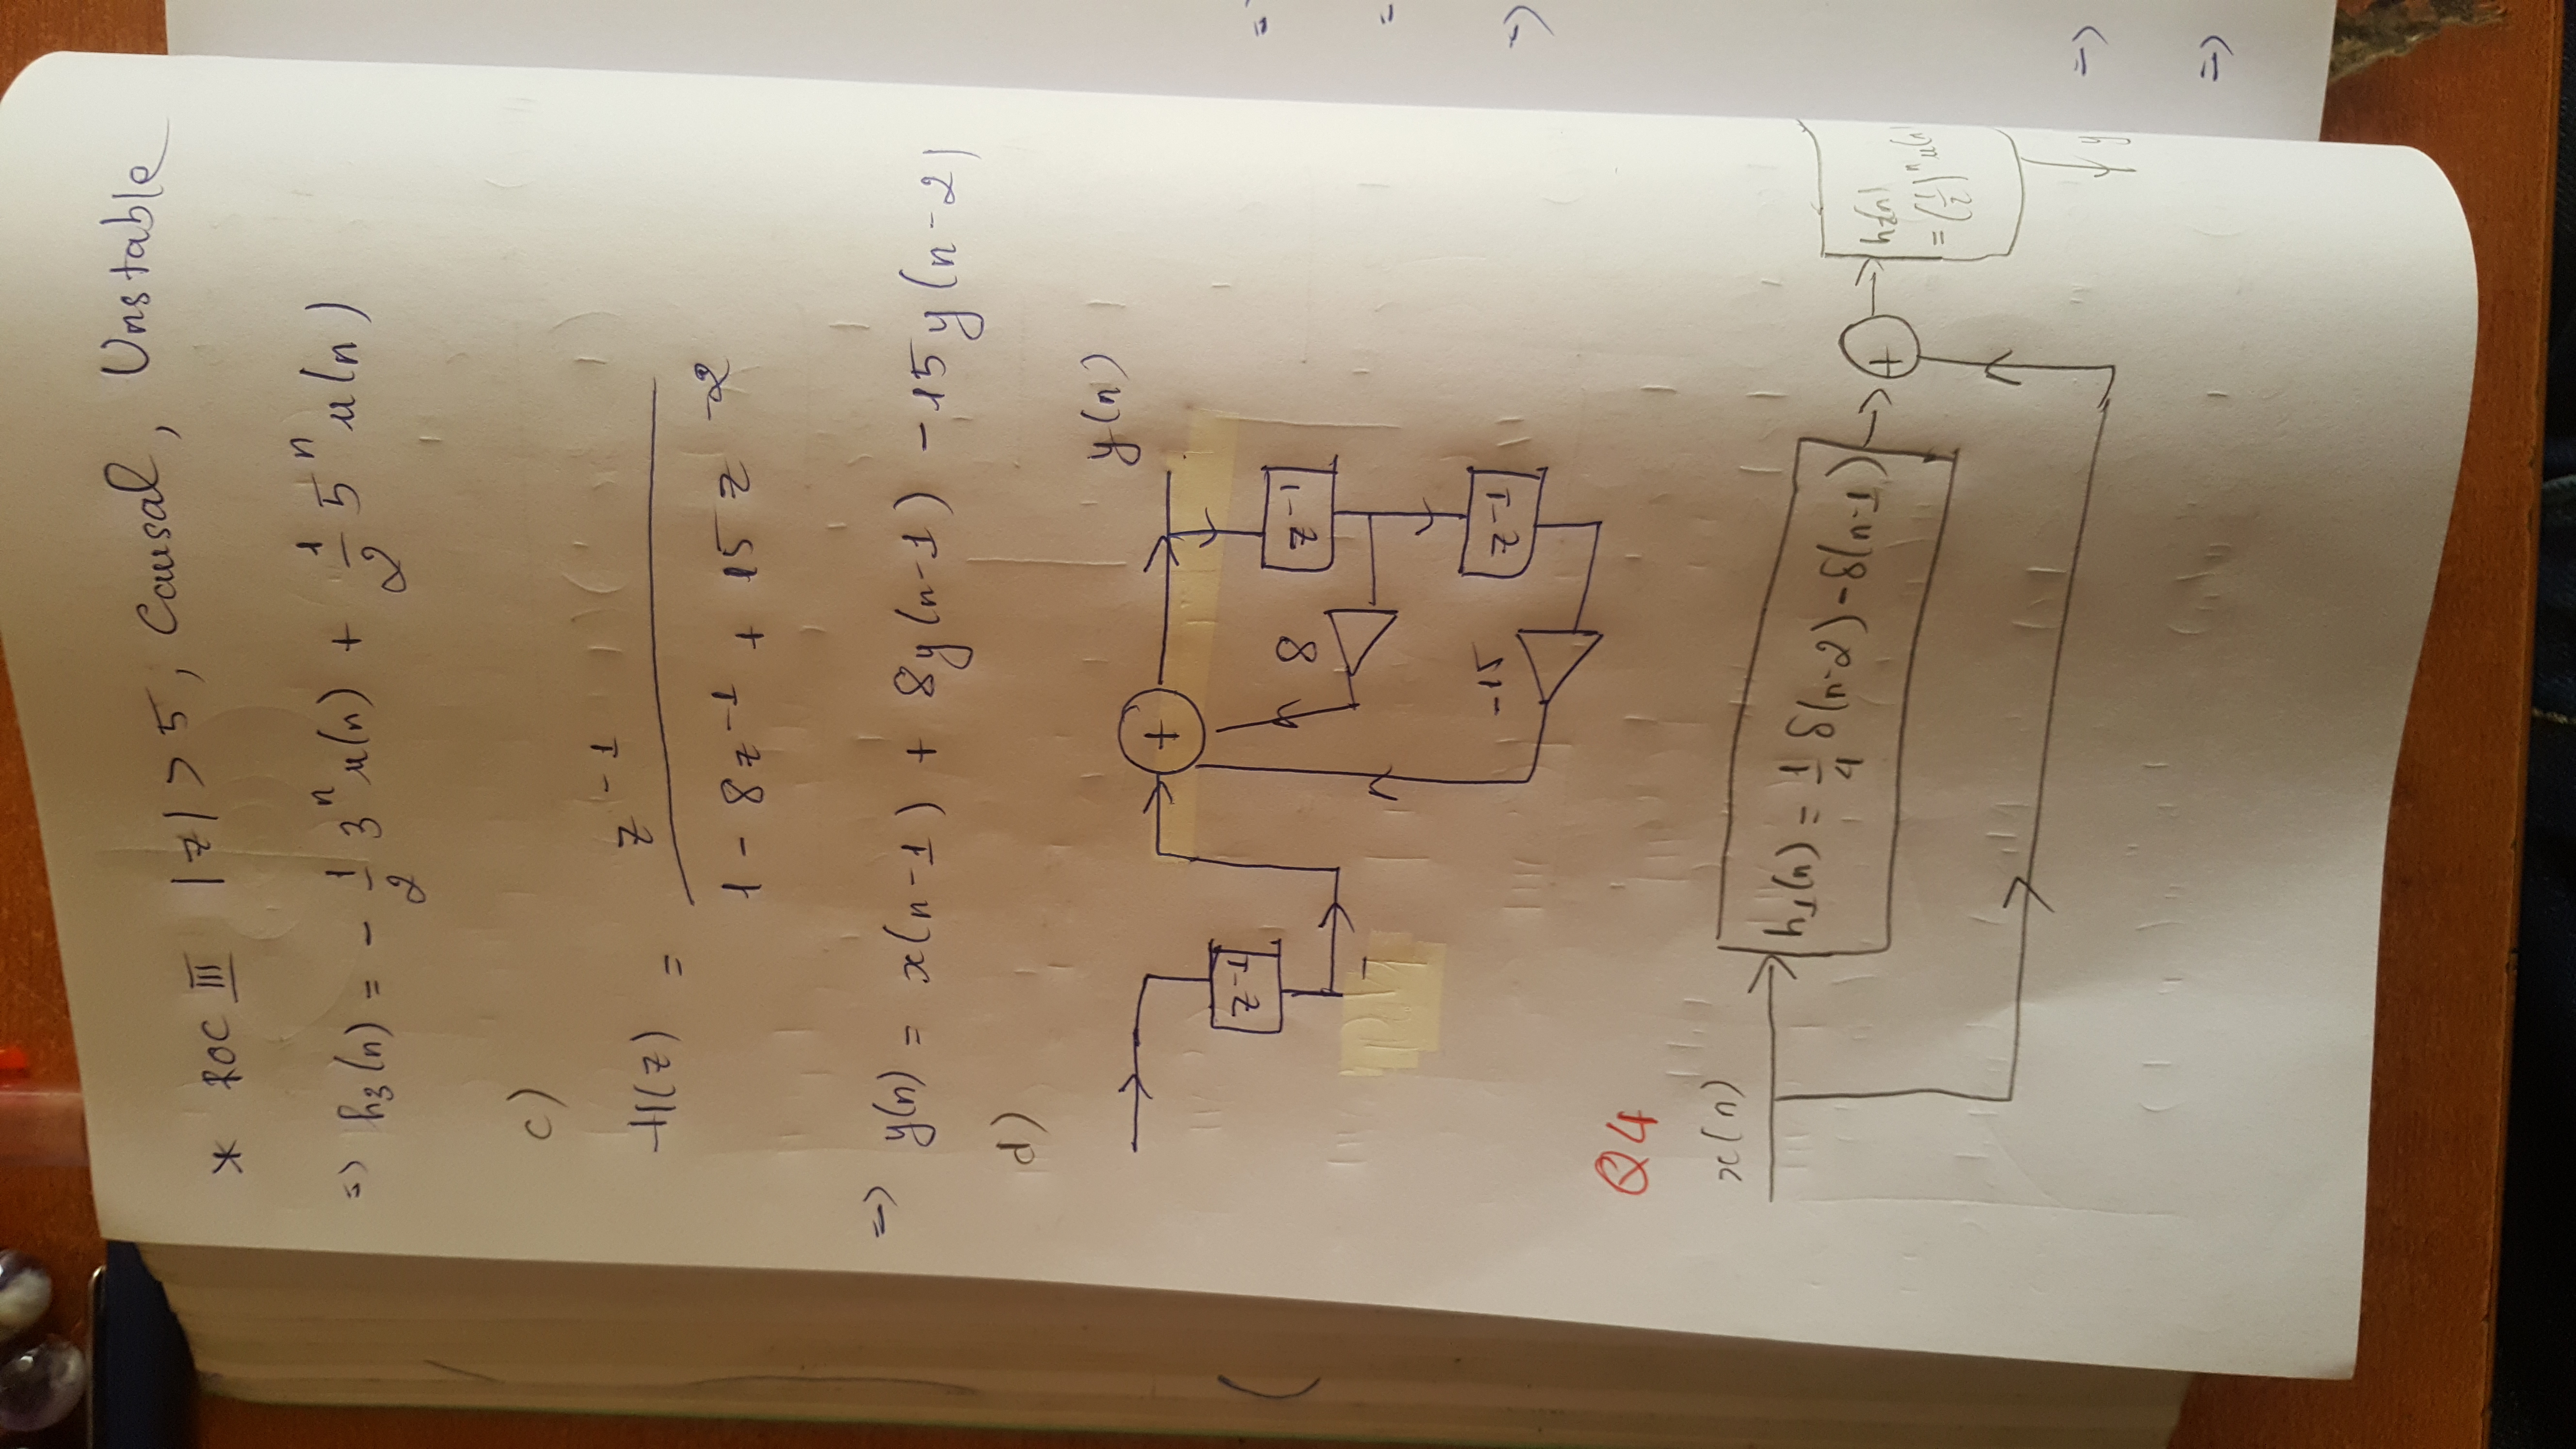 * ROC III |z| > 5, Causal, Unstable
=> h₃(n) = - 1/2 3ⁿ u(n) + 1/2 5ⁿ u(n)
c)
H(z) = z⁻¹ / (1 - 8z⁻¹ + 15z⁻²)
=> y(n) = x(n-1) + 8y(n-1) - 15y(n-2)
d)
y(n)
+
z⁻¹
8
z⁻¹
-15
z⁻¹
Q4
x(n)
h₁(n) = 1/4 δ(n-2) - δ(n-1)
+
h₂(n)
= (1/2)ⁿ u(n)
y
=
=
=>
=>
=>